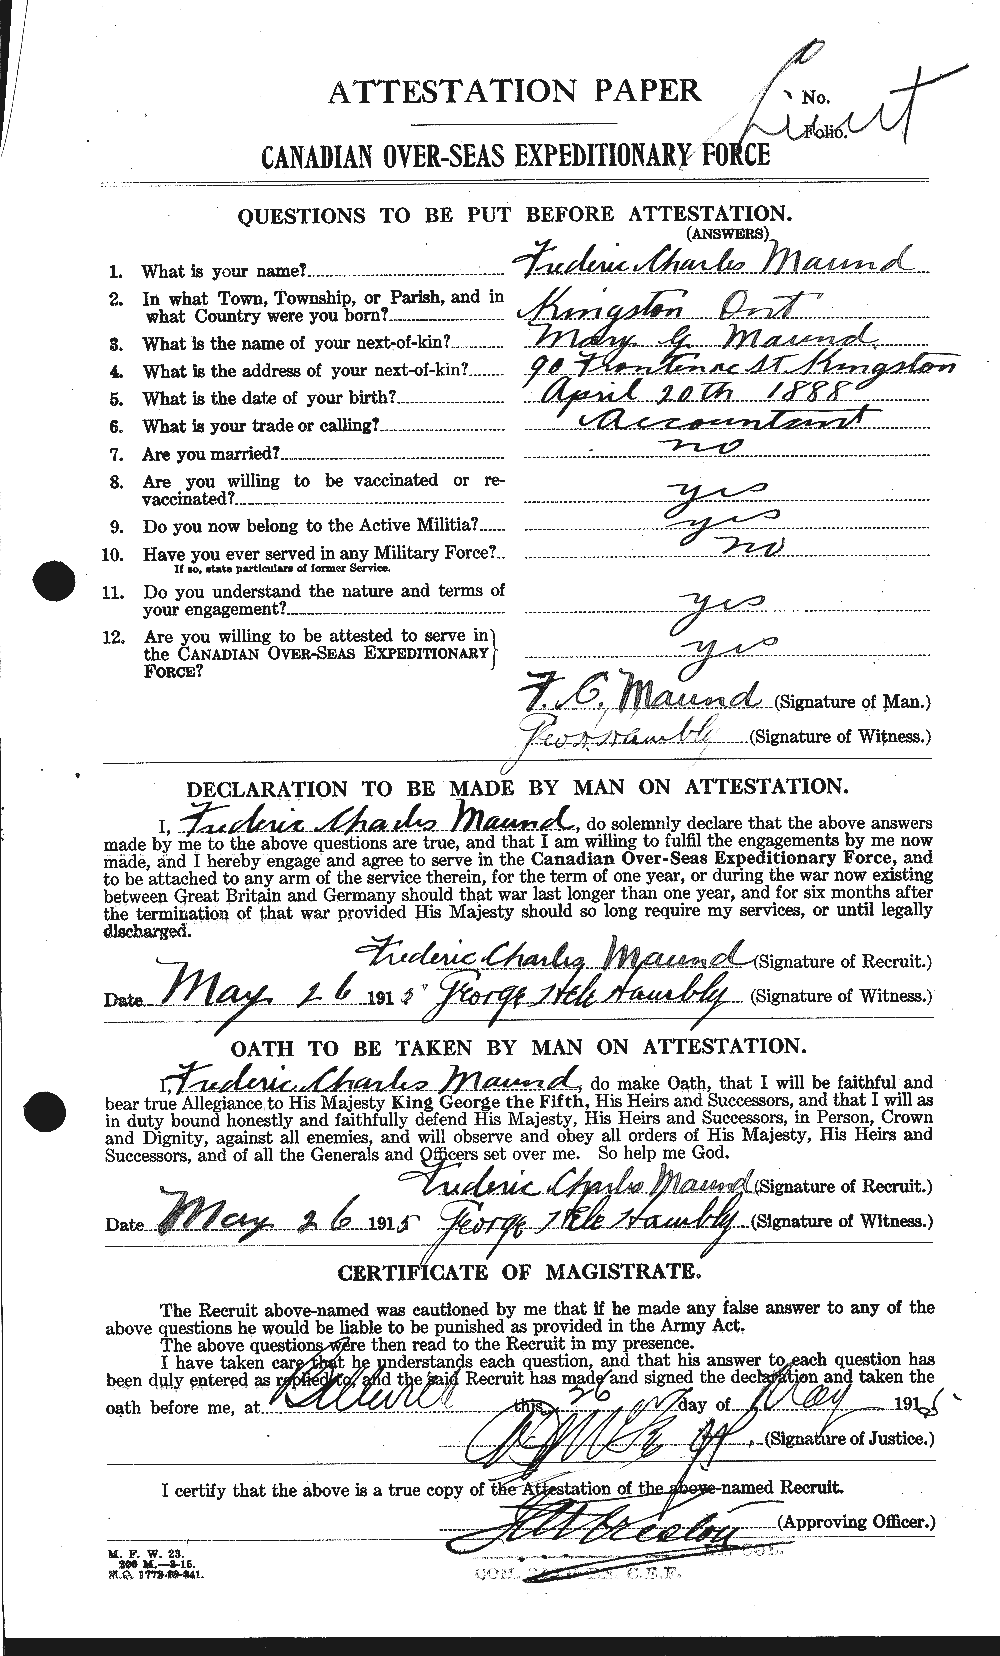 ATTESTATION PAPER
No.
Folio.
Lieut
CANADIAN OVER-SEAS EXPEDITIONARY FORCE
QUESTIONS TO BE PUT BEFORE ATTESTATION.
(ANSWERS)
1. What is your name? Frederic Charles Maund
2. In what Town, Township, or Parish, and in
what Country were you born? Kingston Ont
3. What is the name of your next-of-kin? Mary G Maund
4. What is the address of your next-of-kin? 90 Frontenac St Kingston
5. What is the date of your birth? April 20th 1888
6. What is your trade or calling? Accountant
7. Are you married? no
8. Are you willing to be vaccinated or re-
vaccinated? yes
9. Do you now belong to the Active Militia? yes
10. Have you ever served in any Military Force? no
If so, state particulars of former Service.
11. Do you understand the nature and terms of
your engagement? yes
12. Are you willing to be attested to serve in
the CANADIAN OVER-SEAS EXPEDITIONARY yes
FORCE?
F. C. Maund (Signature of Man.)
Hambly (Signature of Witness.)
DECLARATION TO BE MADE BY MAN ON ATTESTATION.
I, Frederic Charles Maund, do solemnly declare that the above answers
made by me to the above questions are true, and that I am willing to fulfil the engagements by me now
made, and I hereby engage and agree to serve in the Canadian Over-Seas Expeditionary Force, and
to be attached to any arm of the service therein, for the term of one year, or during the war now existing
between Great Britain and Germany should that war last longer than one year, and for six months after
the termination of that war provided His Majesty should so long require my services, or until legally
discharged.
Frederic Charles Maund (Signature of Recruit.)
Date May 26 1915 George Hambly (Signature of Witness.)
OATH TO BE TAKEN BY MAN ON ATTESTATION.
I, Frederic Charles Maund, do make Oath, that I will be faithful and
bear true Allegiance to His Majesty King George the Fifth, His Heirs and Successors, and that I will as
in duty bound honestly and faithfully defend His Majesty, His Heirs and Successors, in Person, Crown
and Dignity, against all enemies, and will observe and obey all orders of His Majesty, His Heirs and
Successors, and of all the Generals and Officers set over me. So help me God.
Frederic Charles Maund (Signature of Recruit.)
Date May 26 1915 George Hambly (Signature of Witness.)
CERTIFICATE OF MAGISTRATE.
The Recruit above-named was cautioned by me that if he made any false answer to any of the
above questions he would be liable to be punished as provided in the Army Act.
The above questions were then read to the Recruit in my presence.
I have taken care that he understands each question, and that his answer to each question has
been duly entered as replied to, and the said Recruit has made and signed the declaration and taken the
oath before me, at this 26 day of May 1915
(Signature of Justice.)
I certify that the above is a true copy of the Attestation of the above-named Recruit.
(Approving Officer.)
M. F. W. 23.
200 M.—2-15.
H.Q. 1772-39-841.
C.E.F.